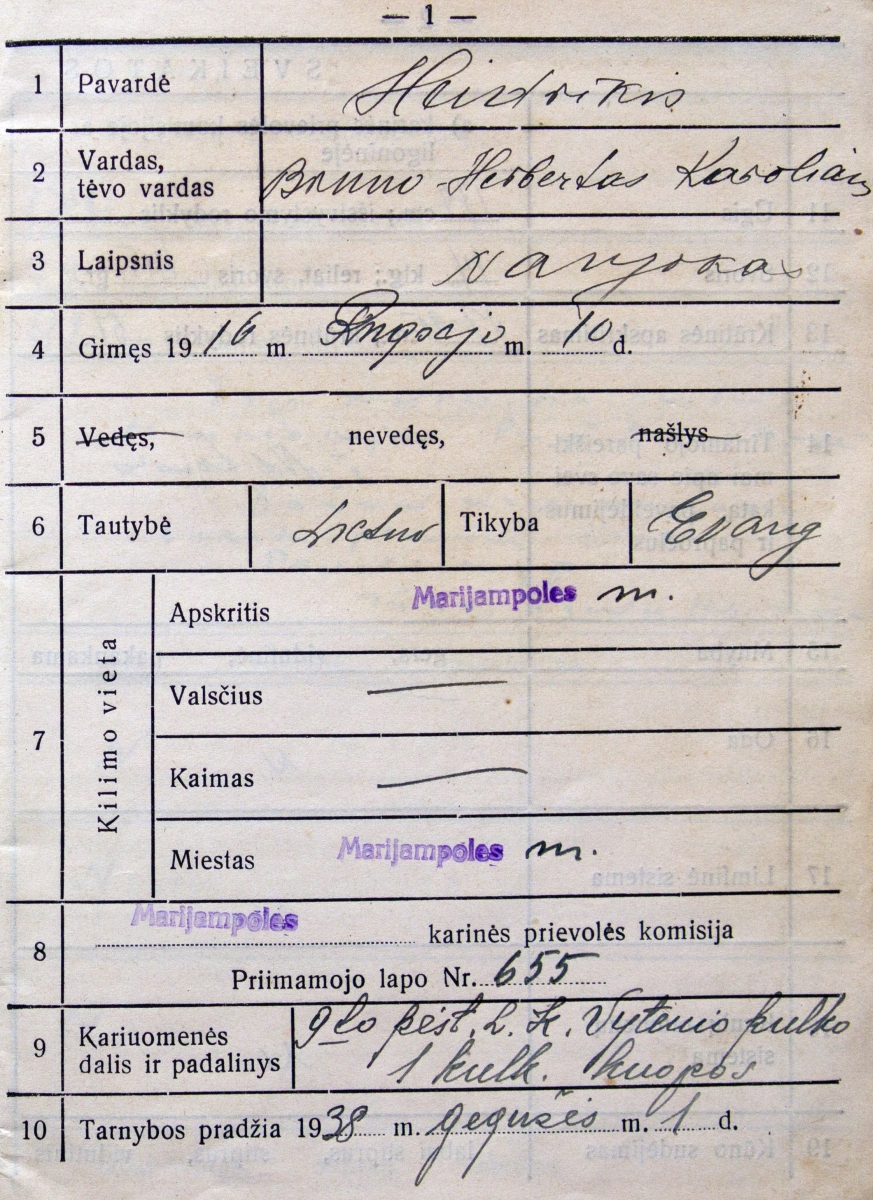 — 1 —
1 Pavardė Heidrikis
2 Vardas, tėvo vardas Bruno-Herbertas Karoliaus
3 Laipsnis
4 Gimęs 1916 m. Rugsėjo m. 10 d.
5 Vedęs, nevedęs, našlys
6 Tautybė Lietuv Tikyba Evang
7 Kilimo vieta
Apskritis Marijampoles m.
Valsčius —
Kaimas —
Miestas Marijampoles m.
8 Marijampoles karinės prievolės komisija
Priimamojo lapo Nr. 655
9 Kariuomenės dalis ir padalinys 9to pėst. L. K. Vytenio pulko
1 kulk. kuopos
10 Tarnybos pradžia 1938 m. gegužės m. 1 d.